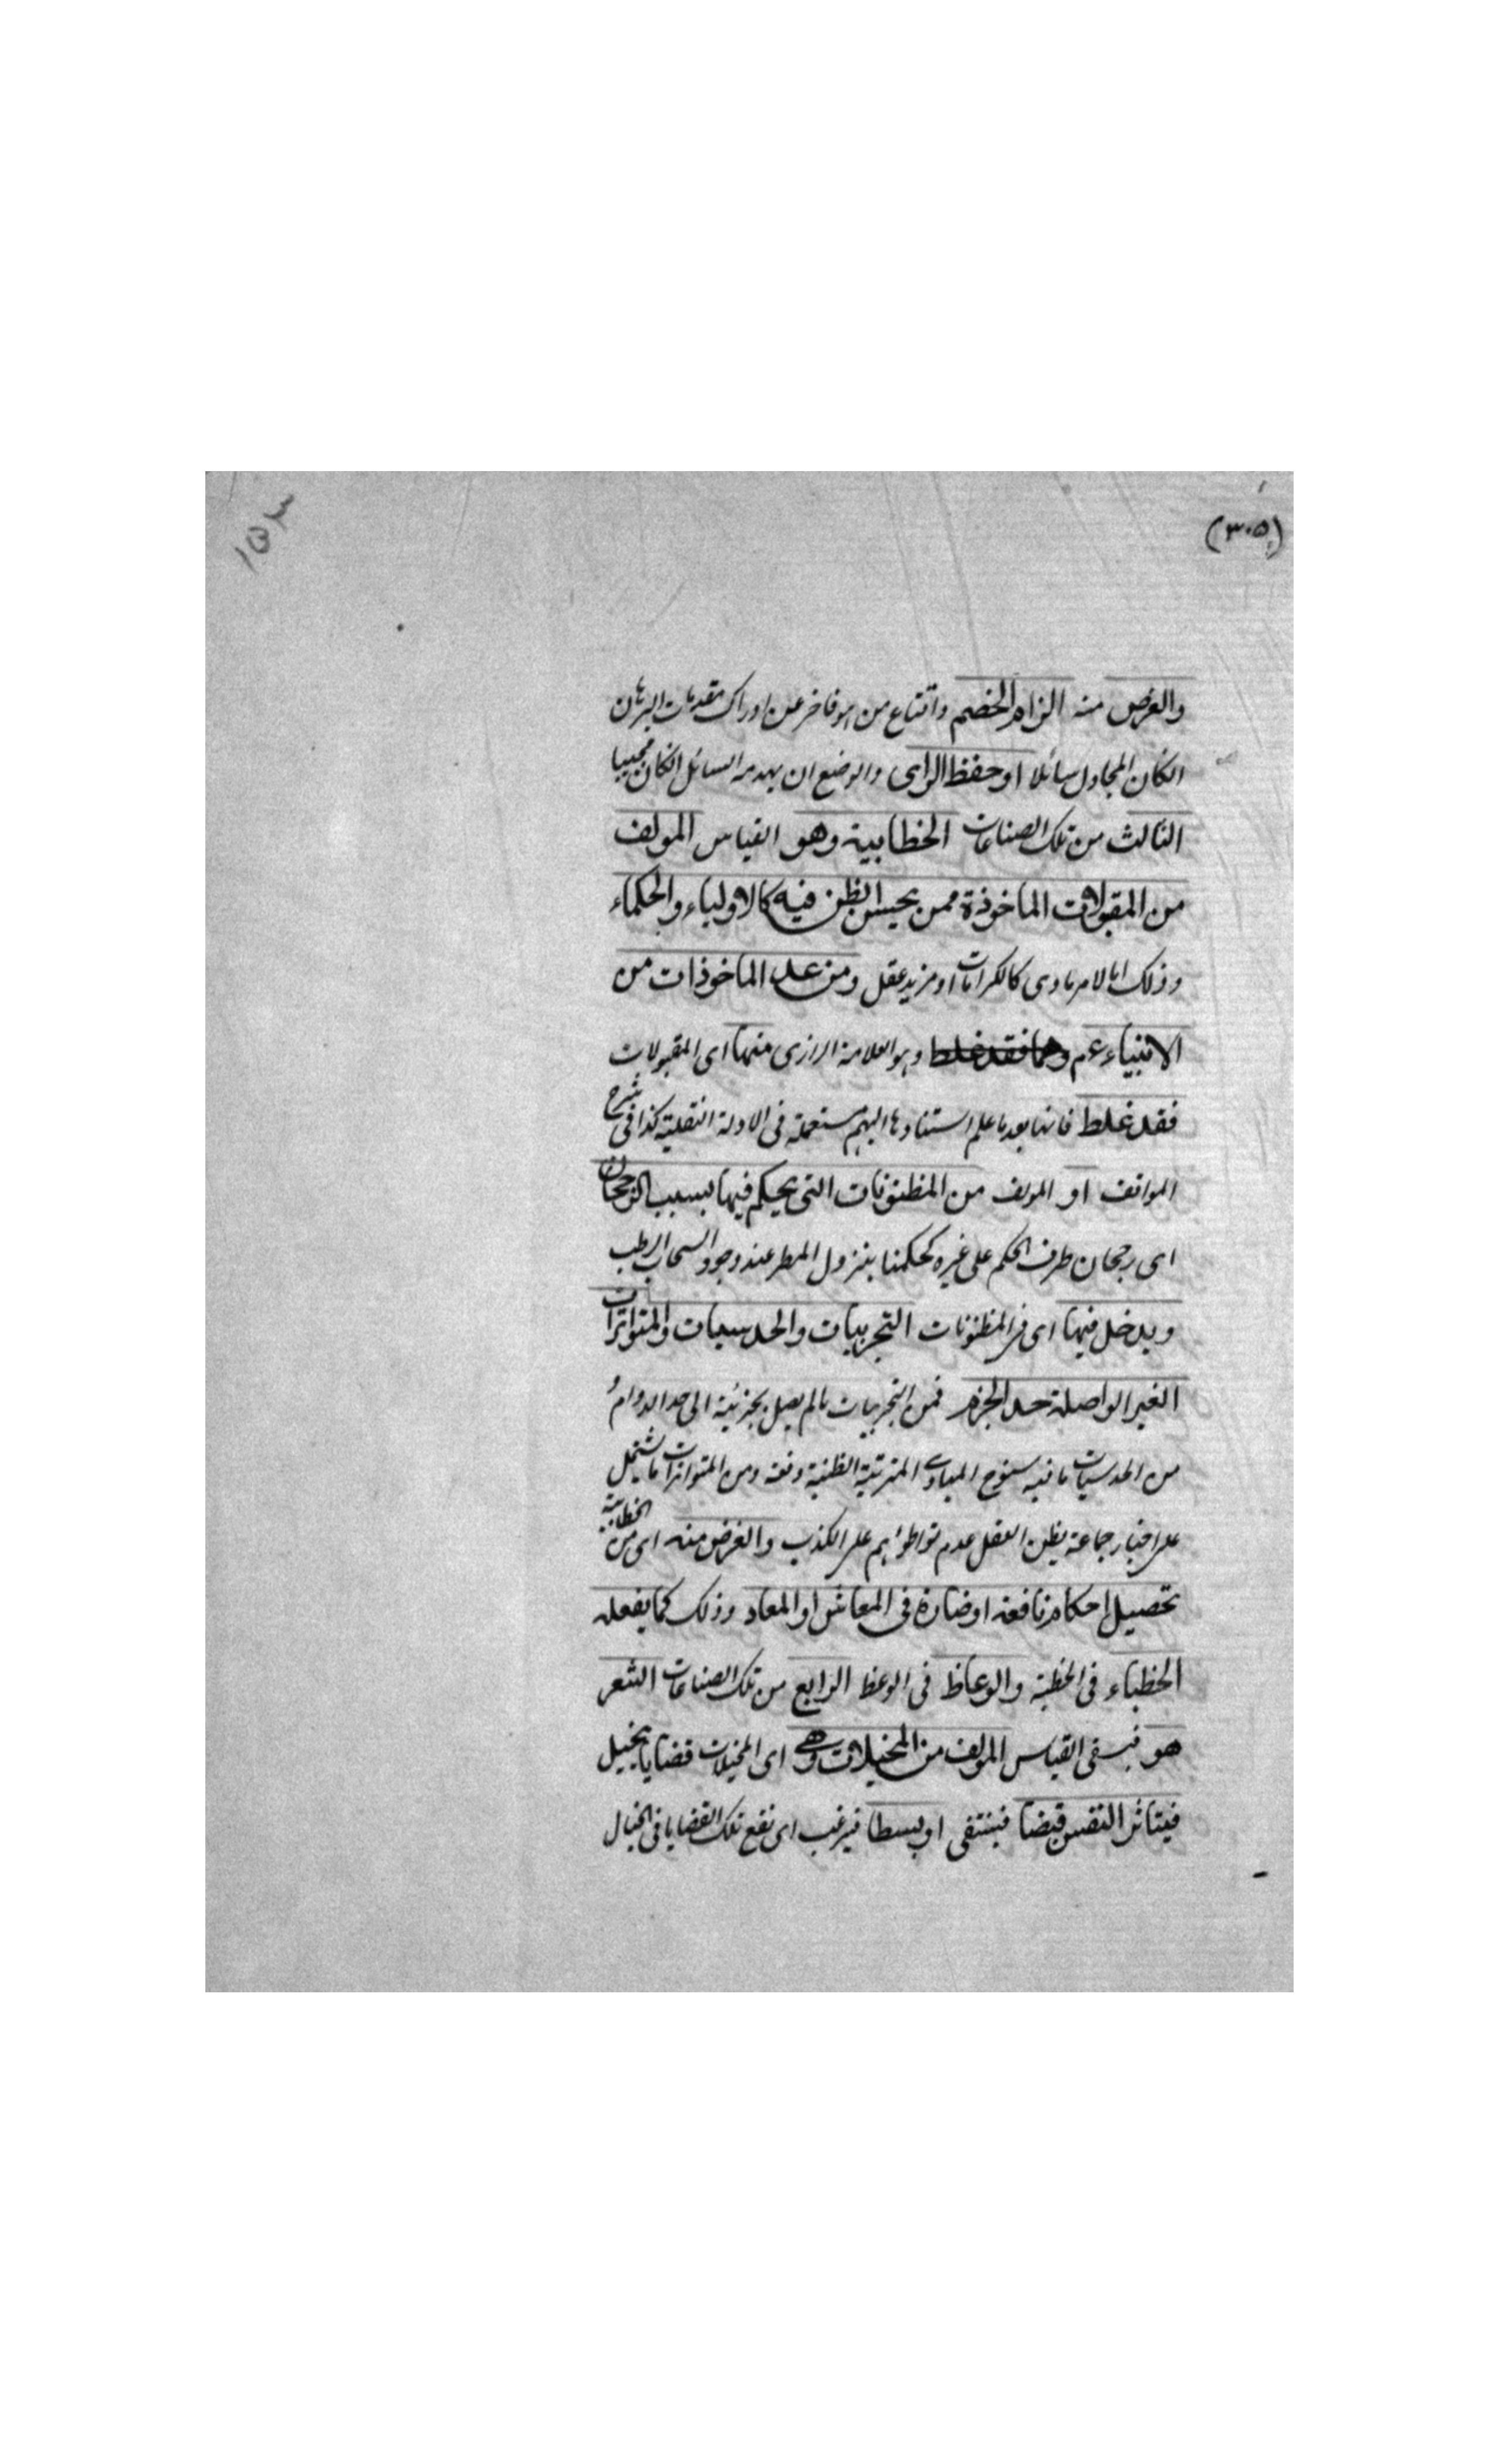 (٣٠٥)
١٥٣
والغرض منه الزام الخصم واقناع من هو قاصر عن ادراك مقدمات البرهان
انكان المجادل سائلا او حفظ الراى والوضع ان يهدمه السائل انكان مجيبا
الثالث من تلك الصناعات الخطابية وهو القياس المولف
من المقبولات الماخوذة ممن يحسن الظن فيه كالاولياء والحكماء
وذلك اما لامر سماوى كالكرامات او مزيد عقل ومن عد الماخوذات من
الانبياء عم وهو العلامة الرازى منها اى المقبولات
فقد غلط فانها بعد ما علم استنادها اليهم مستعملة فى الادلة النقلية كذا فى شرح
المواقف او المولف من المظنونات التى يحكم فيها بسبب الرجحان
اى رجحان طرف الحكم على غيره كحكمنا بنزول المطر عند وجود السحاب الرطب
ويدخل فيها اى فى المظنونات التجربيات والحدسيات والمتواترات
الغير الواصلة حد الجزم فمن التجربيات مالم يصل بجزئية الى حد الدوام و
من الحدسيات ما فيه سنوح المبادى المترتبة الظنية دفعة ومن المتواترات ما يشتمل
على اخبار جماعة يظن العقل عدم تواطؤهم على الكذب والغرض منه اى من الخطابية
تحصيل احكام نافعة او ضارة فى المعاش او المعاد وذلك كما يفعله
الخطباء فى الخطبة والوعاظ فى الوعظ الرابع من تلك الصناعات الشعر
هو القياس المولف من المخيلات وهى اى المخيلات قضايا يخيل
فيتاثر النفس قبضا او بسطا فيرغب اى تقع تلك القضايا فى الخيال